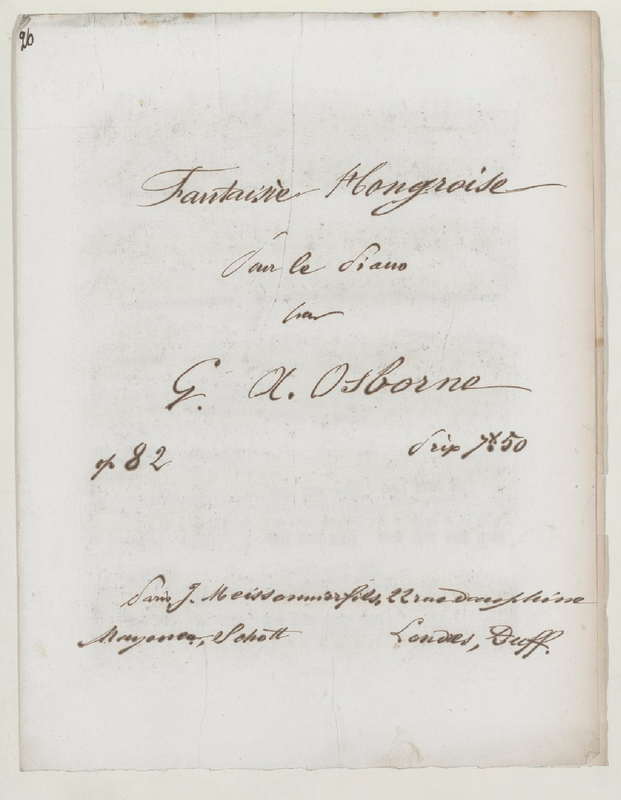 26
Fantaisie Hongroise
Pour le Piano
par
G. A. Osborne
op 82 Prix 7f 50
Paris J. Meissonnier fils, 22 rue dauphine
Mayence, Schott Londres, Duff.